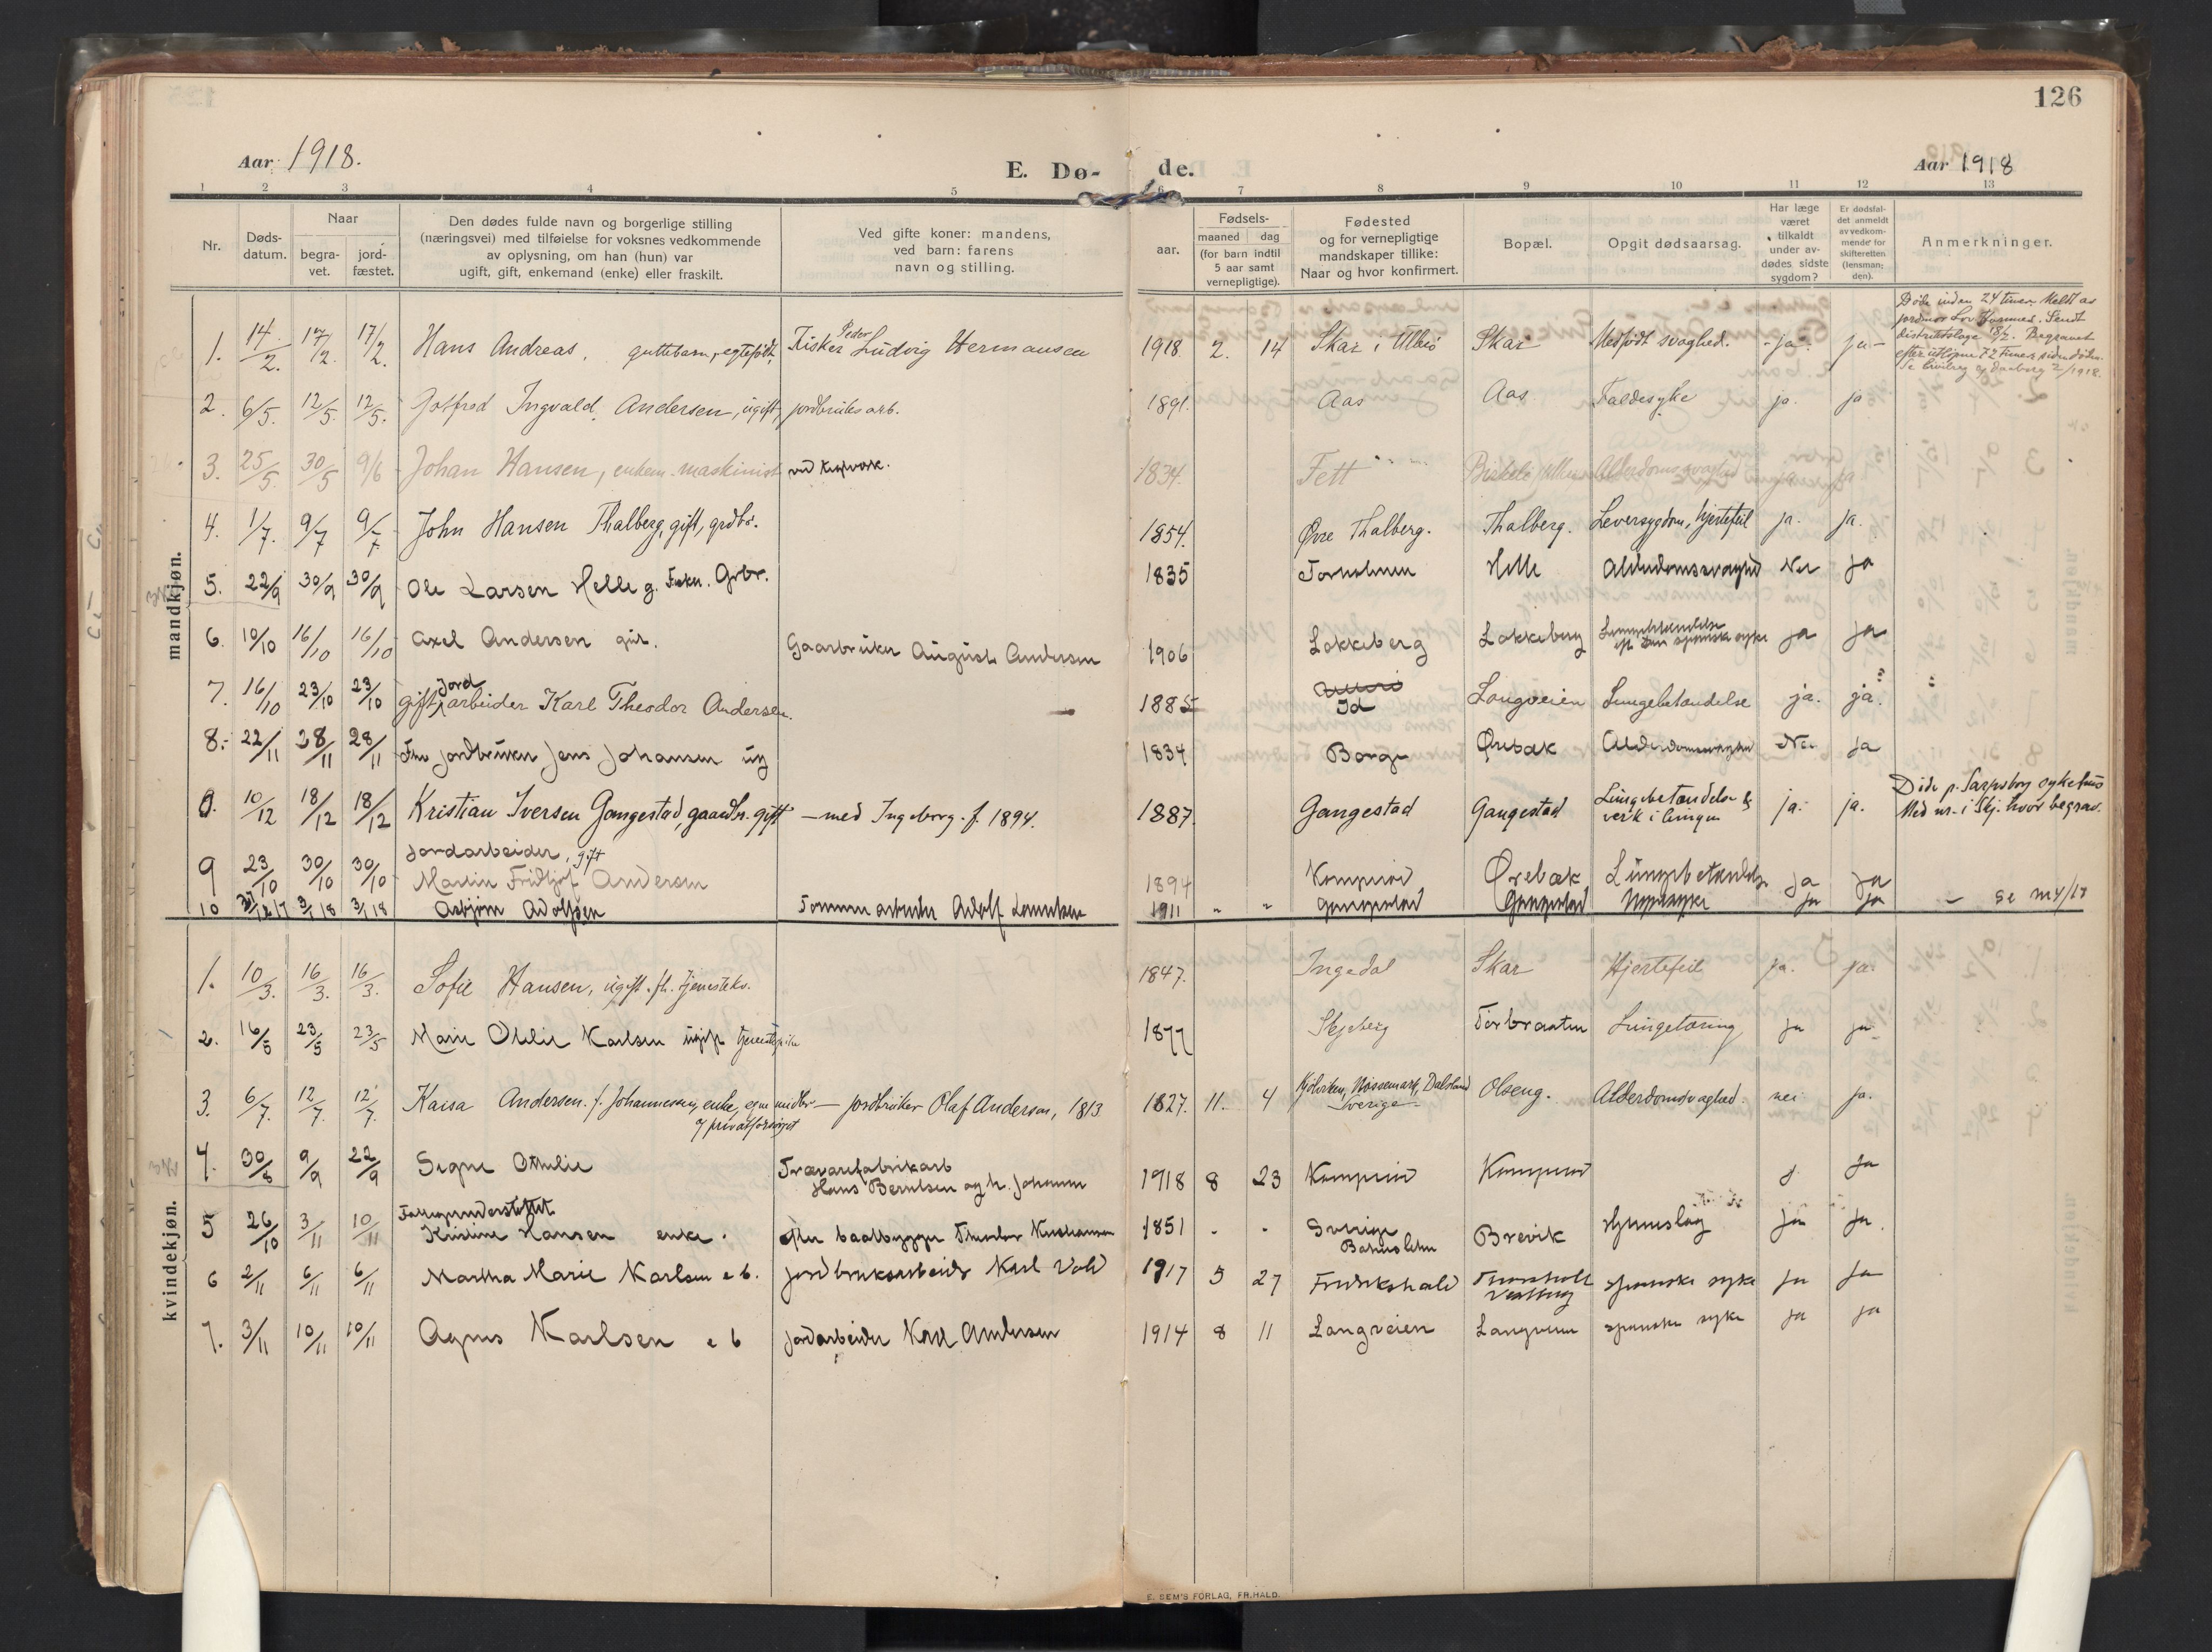 126
Aar 1918.
E. Dø-
de.
Aar 1918
1 2 3 4 5 6 7 8 9 10 11 12 13
Nr.
Døds-
datum.
Naar
begra-
vet.
jord-
fæstet.
Den dødes fulde navn og borgerlige stilling
(næringsvei) med tilføielse for voksnes vedkommende
av oplysning, om han (hun) var
ugift, gift, enkemand (enke) eller fraskilt.
Ved gifte koner: mandens,
ved barn: farens
navn og stilling.
aar.
Fødsels-
maaned dag
(for barn indtil
5 aar samt
vernepligtige).
Fødested
og for vernepligtige
mandskaper tillike:
Naar og hvor konfirmert.
Bopæl.
Opgit dødsaarsag.
Har læge
været
tilkaldt
under av-
dødes sidste
sygdom?
Er dødsfal-
det anmeldt
av vedkom-
mende for
skifteretten
(lensman-
den).
Anmerkninger.
mandkjøn.
1. 14/2. 17/2. 17/2. Hans Andreas, guttebarn, egtefødt, Fisker Peder Ludvig Hermansen 1918. 2. 14 Skar i Ullerø Skar Medfødt svaghed. ja. ja
Døde inden 24 timer. Meldt av
jordmor Sendt
distriktslæge 18/2. Begravet
efter 72 timer siden døden.
Se 2/1918.
2. 6/5. 12/5. 12/5. Gotfred Ingvald Andersen, ugift, jordbruksarb. 1891. Aas Aas Faldesyke ja. ja
3. 25/5 30/5 9/6 Johan Hansen, enkem. maskinist ved 1834. Fett Alderdomssvaghed ja ja
4. 1/7. 9/7 9/7 John Hansen Thalberg, gift, grdbr. 1854. Øvre Thalberg. Thalberg. Leversygdom, hjertefeil ja. ja.
5. 22/9 30/9 30/9 Ole Larsen Helle g. Grbr. 1835 Torholmen Helle Alderdomssvaghed Nei ja
6. 10/10 16/10 16/10 Axel Andersen gut. Gaarbruker August Andersen 1906 Lokkeberg Lokkeberg Lungebetændelse
eft. den spanske syke ja ja
7. 16/10 23/10 23/10 gift, jordarbeider Karl Theodor Andersen. 1885 Id Langveien Lungebetændelse ja. ja.
8. 22/11 28/11 28/11 Fhv jordbruker Jens Johansen ug 1834 Borge Ørebæk Alderdomssvaghed Nei ja
9. 10/12 18/12 18/12 Kristian Iversen Gangestad, gaardbr. gift — med Ingeborg. f. 1894. 1887. Gangestad Gangestad Lungebetændelse &
verk i lungen ja. ja. Døde p. Sarpsborg sykehus
Med nr. i Skj. hvor begrav.
9 23/10 30/10 30/10 Jordarbeider, gift
Martin Fridtjof Andersen 1894 Komperød Ørebæk Lungebetændelse ja ja
10 27/12 17 3/1 18 3/1 18 Asbjørn Adolfsen Tømmerarbeider Adolf 1911 " " Gangestad Gangestad Nyresyke ja ja — se nr 4/17
kvindekjøn.
1. 10/3. 16/3. 16/3. Sofie Hansen, ugift. fh. tjenestekv. 1847. Ingedal Skar Hjertefeil ja. ja.
2. 16/5 23/5 23/5 Marie Otilie Karlsen ugift tjenestepike 1877 Skjeberg Torbraaten Lungetæring ja ja
3. 6/7. 12/7. 12/7. Kaisa Andersen f. Johannesen, enke,
og privatforsørget — jordbruker Olaf Andersen, 1813 1827. 11. 4 Nössemark, Dalsland
Sverige Olseng. Alderdomssvaghed. nei ja.
4. 30/8 9/9 22/9 Signe Othilie Trævarefabrikarb
Hans Berntsen og h. Johanne 1918 8 23 Komperød Komperød ja
5 26/10 3/11 10/11 Fattigunderstøttet
Kristine Hansen enke. efter baatbygger Theodor 1851 - - Sverige
Bohuslehn Brevik Hjerneslag ja ja.
6 2/11 6/11 6/11 Martha Marie Karlsen e b. jordbruksarbeider Karl Vold 1917 5 27 Fredrikshald spanske syke ja ja
7. 3/11 10/11 10/11 Agnes Karlsen e b jordarbeider Karl Andersen 1914 8 11 Langveien Langveien spanske syke ja ja
E. SEM'S FORLAG, FR.HALD.